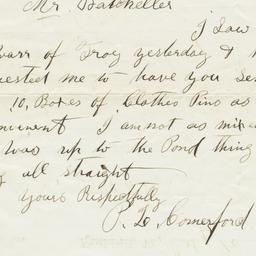 Mr. Batcheller
I Saw
Carr of Troy yesterday & h
uested me to have you Sen
10, Boxes of Clothes Pins as
nvenient I am not as
was up to the Pond thing
g all straight
yours Respectfully
P. L. Comerford